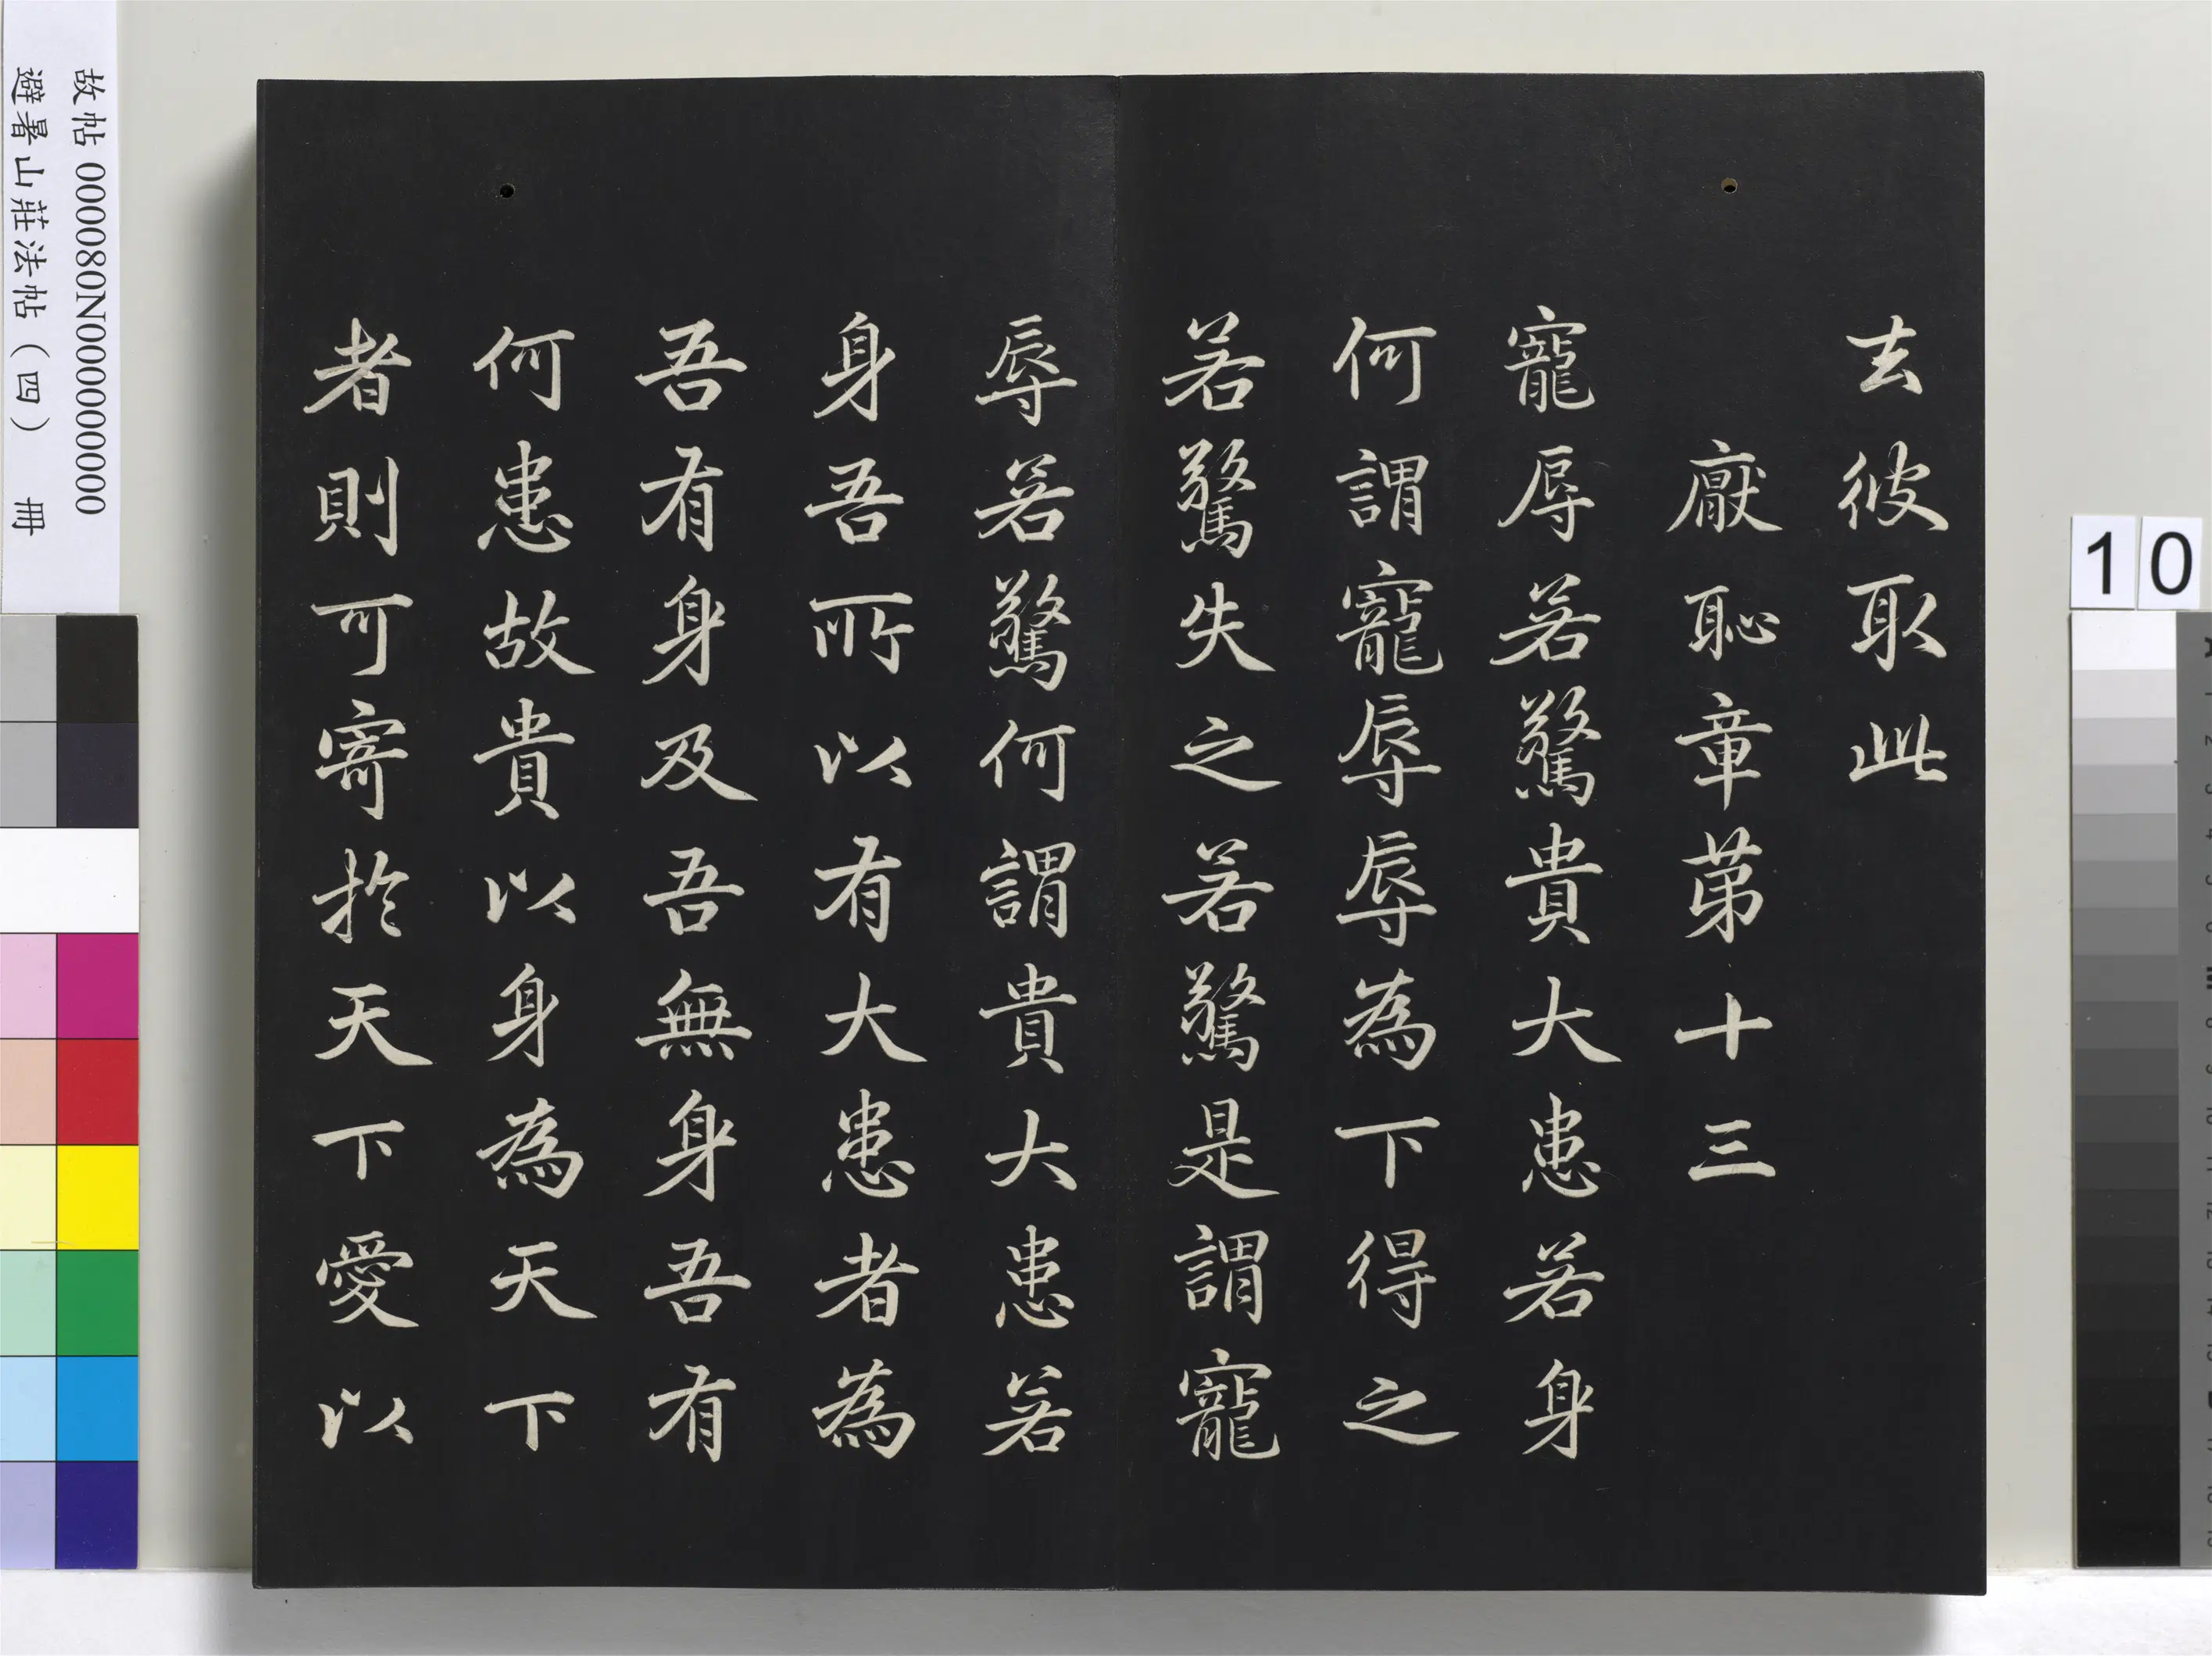 去彼取此
厭恥章第十三
寵辱若驚貴大患若身
何謂寵辱辱為下得之
若驚失之若驚是謂寵
辱若驚何謂貴大患若
身吾所以有大患者為
吾有身及吾無身吾有
何患故貴以身為天下
者則可寄於天下愛以
故帖 000080N000000000
避暑山莊法帖（四） 冊
10